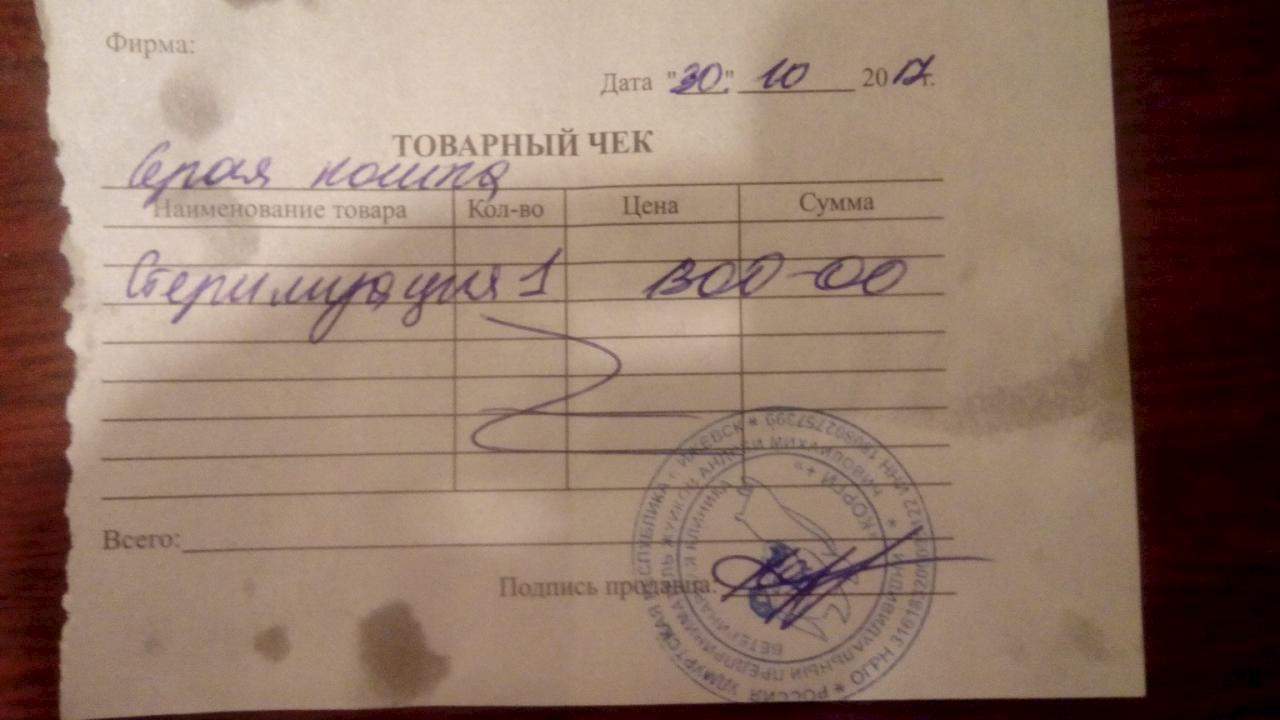 Фирма:
Дата "30." 10 2017г.
ТОВАРНЫЙ ЧЕК
Серая кошка
Наименование товара Кол-во Цена Сумма
Стерилизация 1 1300-00
Всего:
Подпись продавца:
РОССИЯ УДМУРТСКАЯ РЕСПУБЛИКА г. ИЖЕВСК
ИНДИВИДУАЛЬНЫЙ ПРЕДПРИНИМАТЕЛЬ ЖУЙКОВ АНДРЕЙ МИХАЙЛОВИЧ
ВЕТЕРИНАРНАЯ КЛИНИКА
"КОРГИ +"